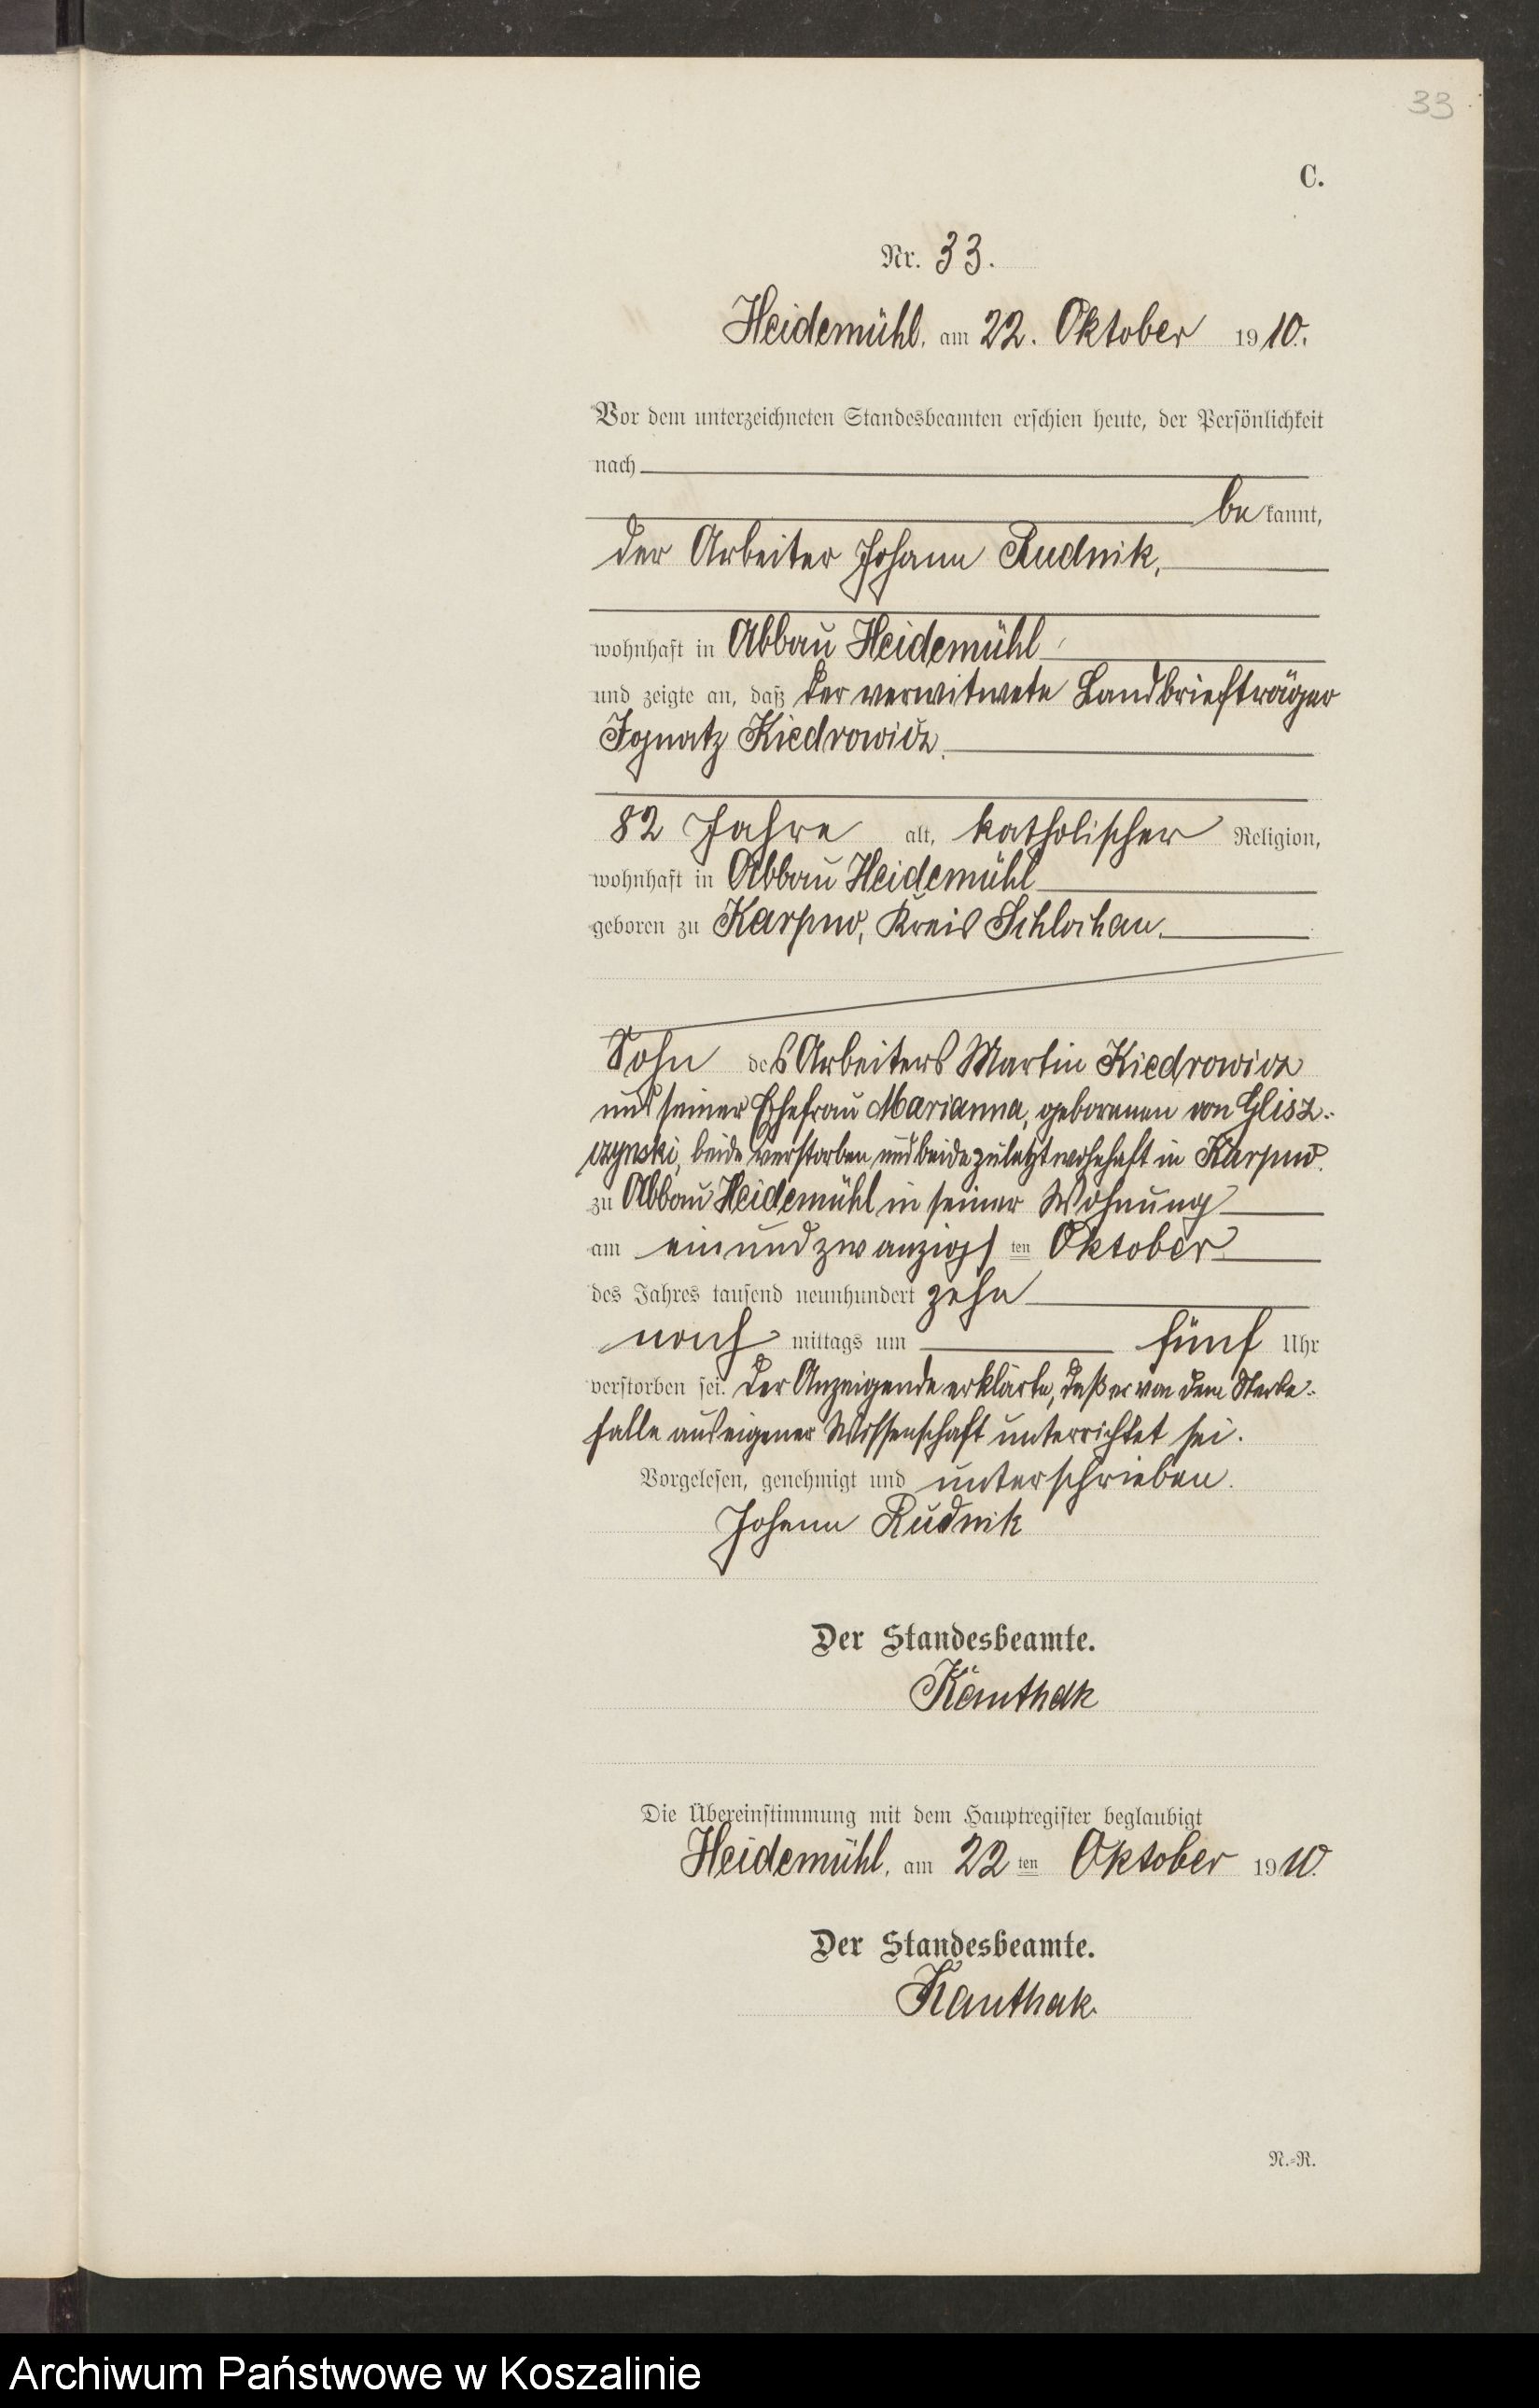 33
C.
Nr. 33.
Heidemühl, am 22. Oktober 1910.
Vor dem unterzeichneten Standesbeamten erschien heute, der Persönlichkeit
nach
bekannt,
der Arbeiter Johann Rudnik,
wohnhaft in Abbau Heidemühl
und zeigte an, daß der verwitwete Landbriefträger
Ignatz Kiedrowicz,
82 Jahre alt, katholischer Religion,
wohnhaft in Abbau Heidemühl
geboren zu Karpno, Kreis Schlochau.
Sohn des Arbeiters Martin Kiedrowicz
und seiner Ehefrau Marianna, geborenen von Glisz-
czynski, beide verstorben und beide zuletzt wohnhaft in Karpno.
zu Abbau Heidemühl in seiner Wohnung
am einundzwanzigsten Oktober
des Jahres tausend neunhundert zehn
nachmittags um fünf Uhr
verstorben sei. Der Anzeigende erklärte, daß er von dem Sterbe-
falle aus eigener Wissenschaft unterrichtet sei.
Vorgelesen, genehmigt und unterschrieben.
Johann Rudnik
Der Standesbeamte.
Kauthak
Die Übereinstimmung mit dem Hauptregister beglaubigt
Heidemühl, am 22ten Oktober 1910.
Der Standesbeamte.
Kauthak.
N.-R.
Archiwum Państwowe w Koszalinie